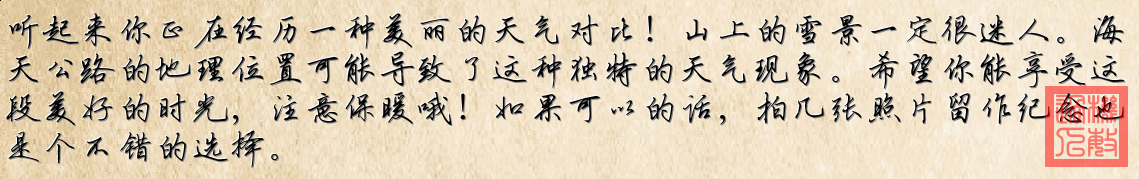 听起来你正在经历一种美丽的天气对比！山上的雪景一定很迷人。海
天公路的地理位置可能导致了这种独特的天气现象。希望你能享受这
段美好的时光，注意保暖哦！如果可以的话，拍几张照片留作纪念也
是个不错的选择。